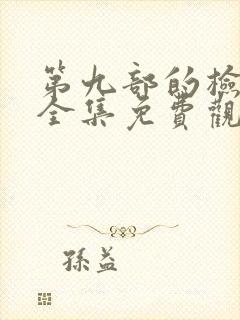 第九部的檢
全集免費觀
孫益